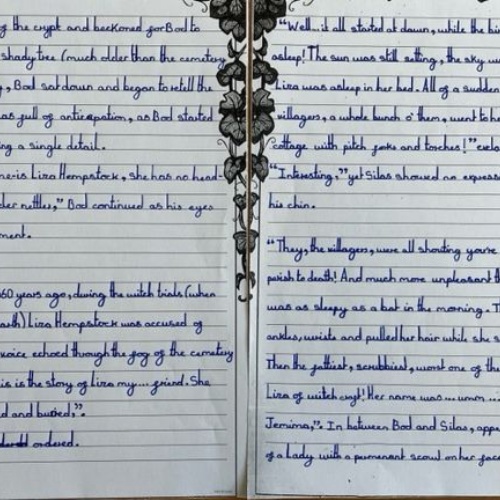 g the crypt and beckoned for Bod to
shady tree (much older than the cemetery
, Bod sat down and began to retell the
as full of anticapation, as Bod started
ng a single detail.
ne is Liza Hempstock, she has no head-
der nettles," Bod continued as his eyes
ment.
60 years ago, during the witch trials (when
arth) Liza Hempstock was accused of
voice echoed through the fog of the cemetery
is is the story of Liza my... friend. She
d and buried,".
ordered.
"Well.. it all started at dawn, while the bi
asleep! The sun was still setting, the sky w
Liza was asleep in her bed. All of a sudden
villagers, a whole bunch o' them, went to he
cottage with pitch forks and torches!" excla
"Interesting," yet Silas showed an express
his chin.
"They, the villagers, were all shouting you're
perish to death! And much more unpleasant th
was as sleepy as a bat in the morning. T
ankles, wrists and pulled her hair while she s
Then the fattiest, scrubbiest, worst one of the
Liza of witch crypt! Her name was... umm ...
Jemima,". In between Bod and Silas, appe
of a Lady with a permenant scowl on her face